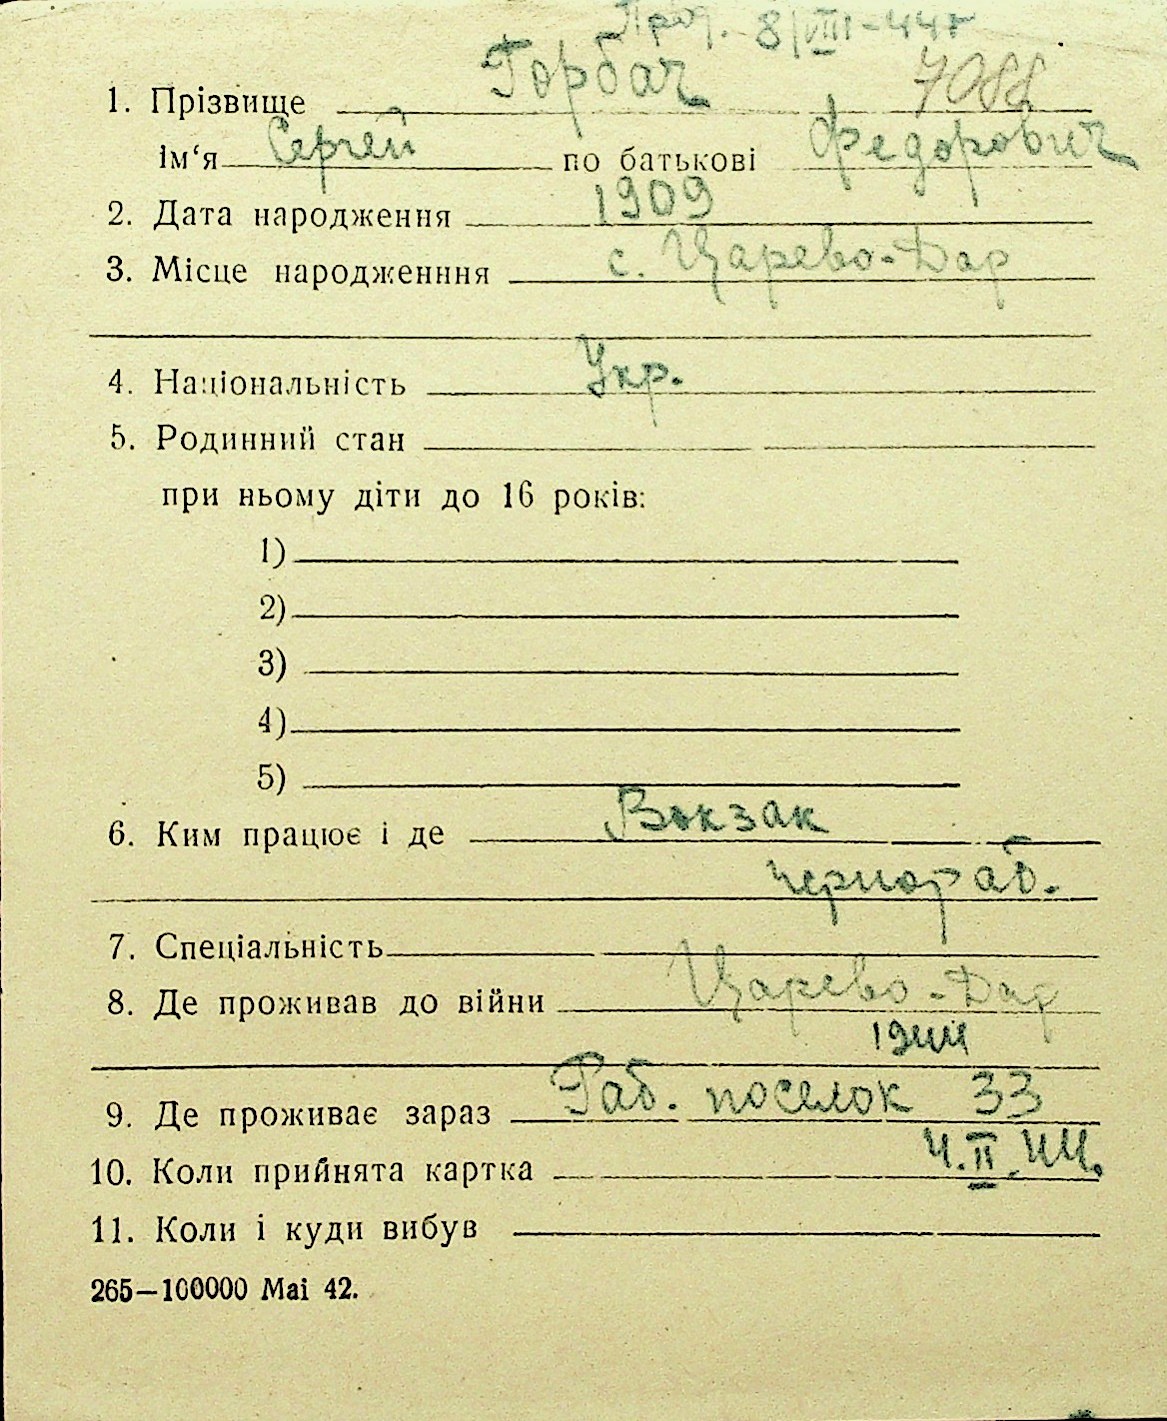 Прод. 8/VIII-44г
1. Прізвище Горбач 7088
Ім‘я Сергей по батькові Федорович
2. Дата народження 1909
3. Місце народженння с. Царево-Дар
4. Національність Укр.
5. Родинний стан
при ньому діти до 16 років:
1)
2)
3)
4)
5)
6. Ким працює і де Вокзак
чернораб.
7. Спеціальність
8. Де проживав до війни Царево-Дар
1944
9. Де проживає зараз Раб. поселок 33
10. Коли прийнята картка 4.II.44.
11. Коли і куди вибув
265—100000 Mai 42.